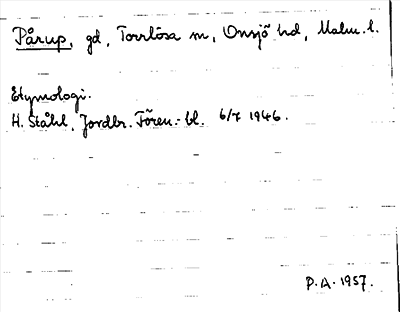 Pårup, gd, Torrlösa sn, Onsjö hd, Malm. l.
Etymologi.
H. Ståhl, Jordbr. Fören:-bl. 6/7 1946.
P.A. 1957.